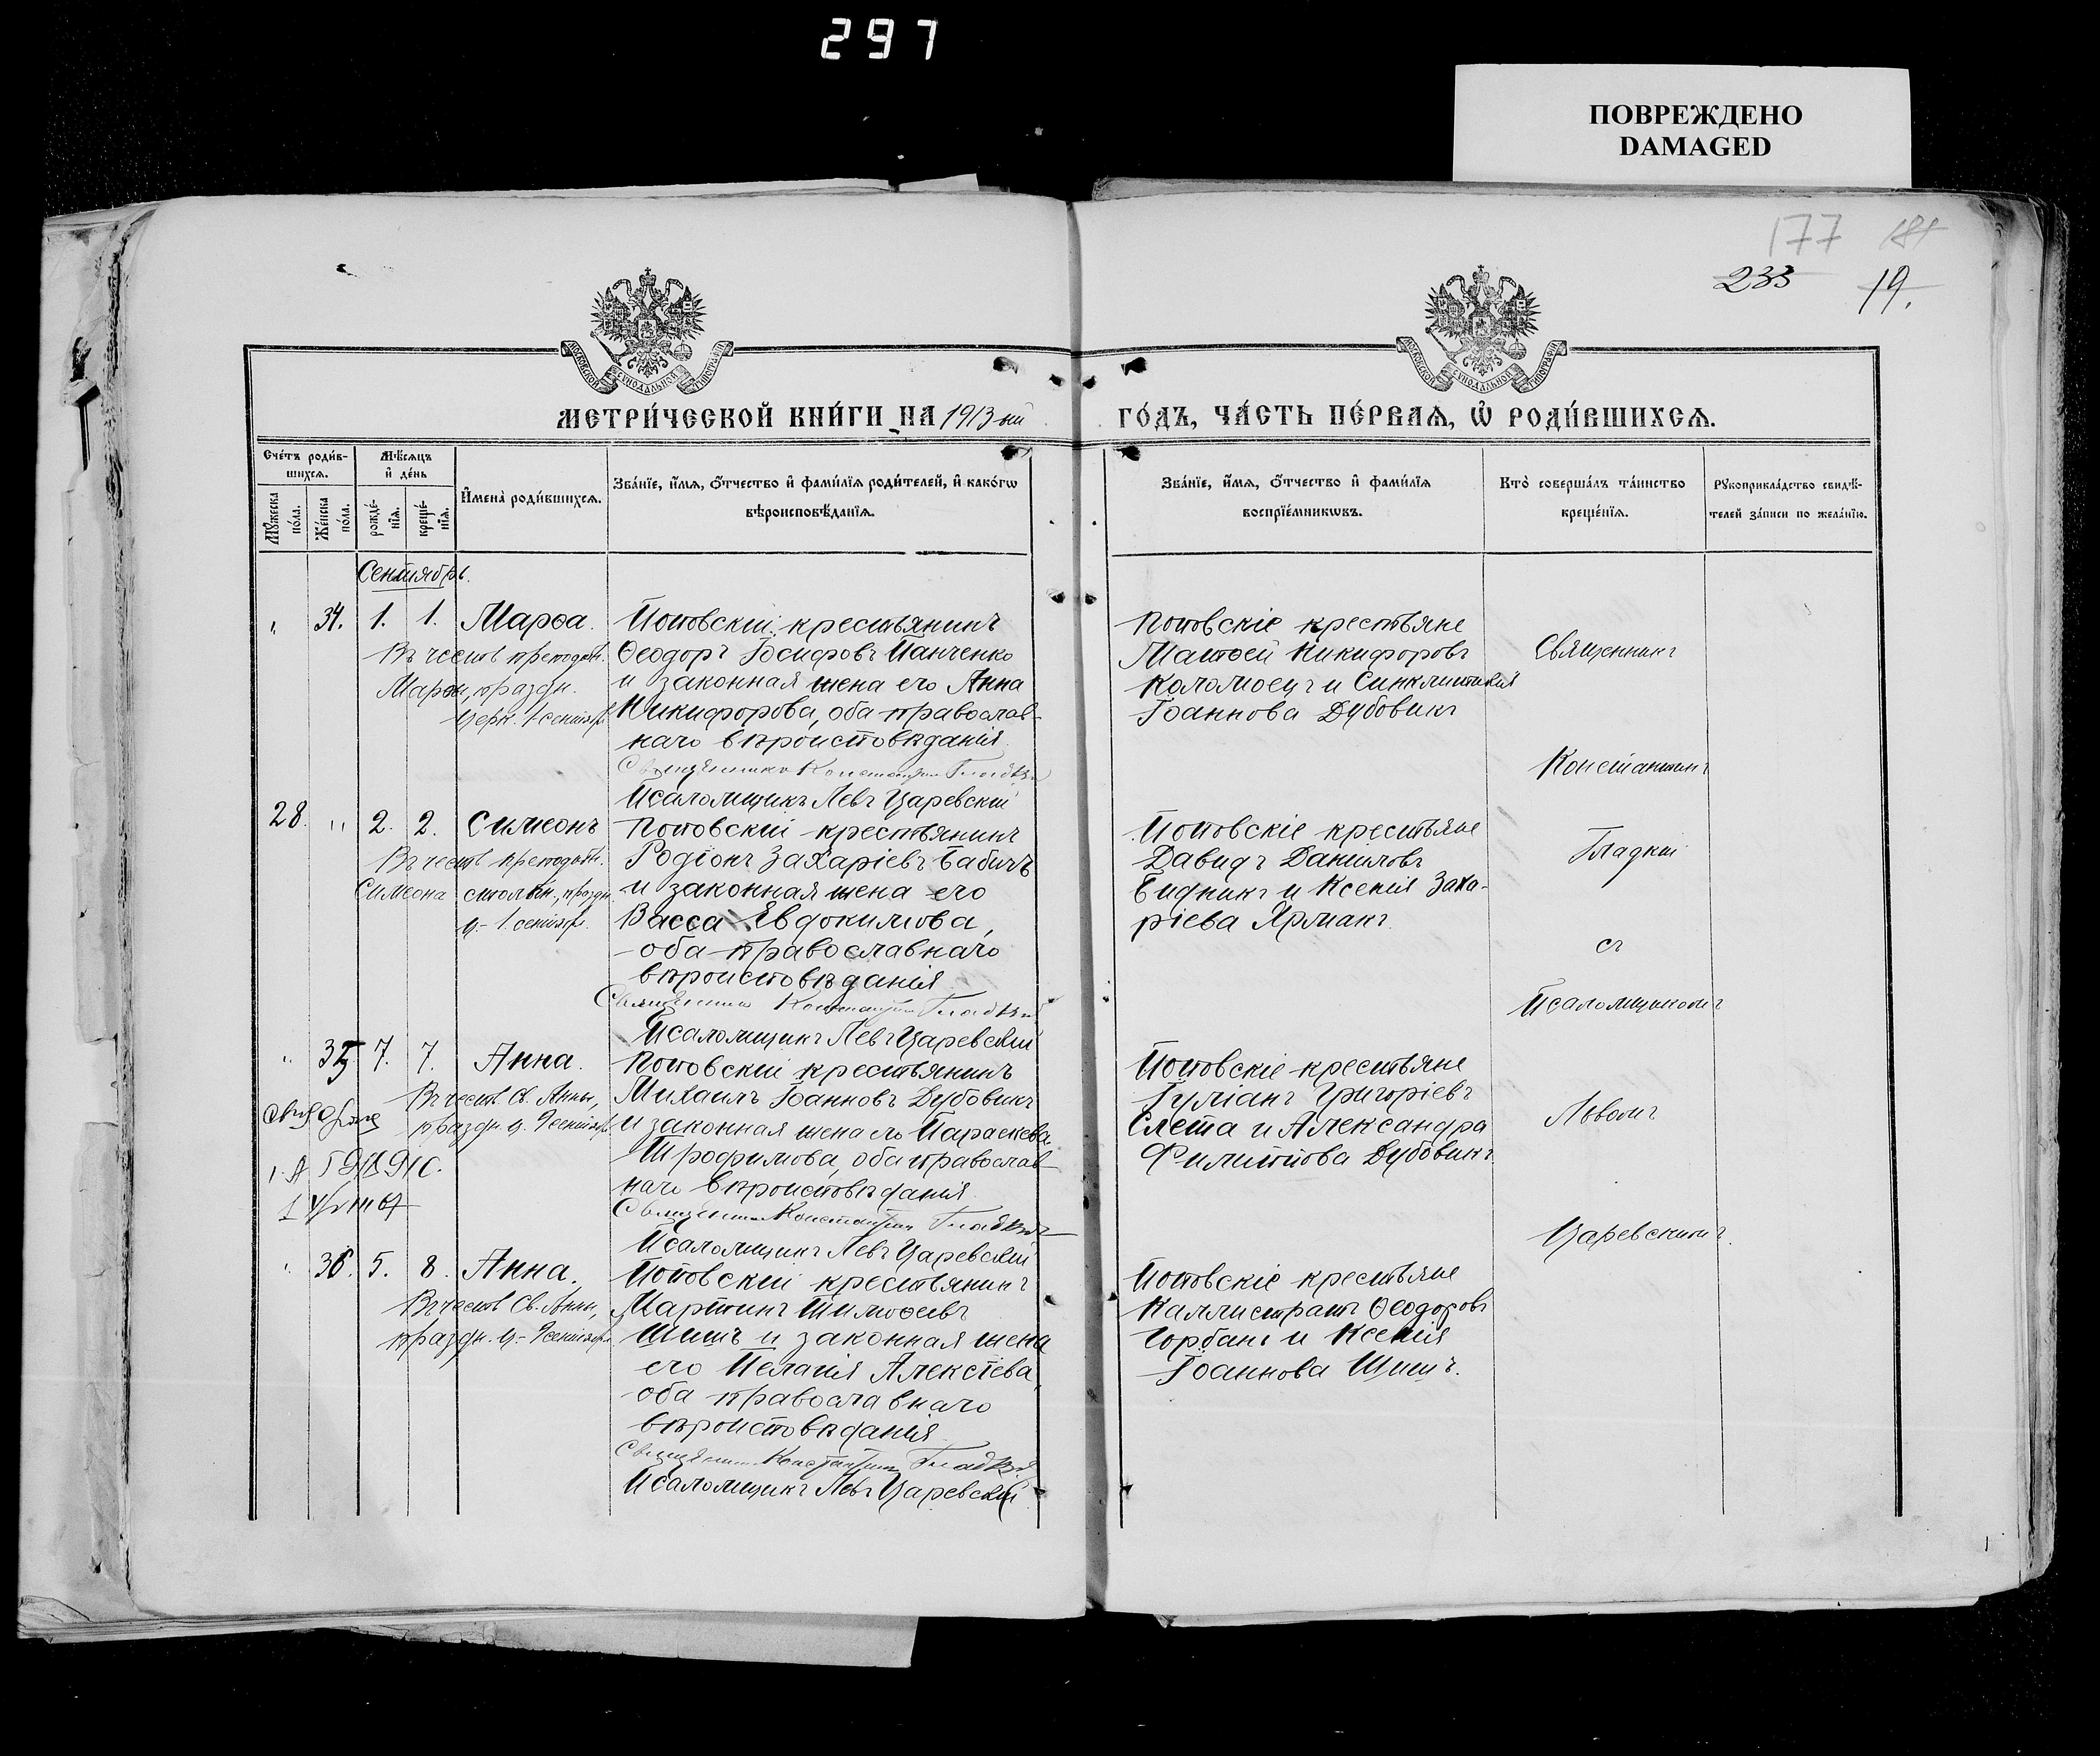 297
ПОВРЕЖДЕНО
DAMAGED
177 181
233 19.
МОСКОВСКОЙ СѴНОДАЛЬНОЙ ТИПОГРАФІИ
МОСКОВСКОЙ СѴНОДАЛЬНОЙ ТИПОГРАФІИ
МЕТРИ́ЧЕСКОЙ КНИ́ГИ НА 1913-ый ГО́ДЪ, ЧА́СТЬ ПЕ́РВАѦ, Ѡ҆ РОДИ́ВШИХСѦ.
Сче́тъ роди́в-
шихсѧ.
Мꙋ́жеска по́ла.
Же́нска по́ла.
Мѣ́сѧцъ
и҆ де́нь
рожде́-
нїѧ.
креще́-
нїѧ.
И҆мена̀ роди́вшихсѧ.
Зва́нїе, и҆́мѧ, ѻ҆́тчество и҆ фами́лїѧ роди́телей, и҆ како́гѡ
вѣроисповѣ́данїѧ.
Зва́нїе, и҆́мѧ, ѻ҆́тчество и҆ фами́лїѧ
воспрїе́мникѡвъ.
Кто̀ соверша́лъ та́инство
креще́нїѧ.
Рꙋкоприкла́дство свидѣ́-
телей за́писи по жела́нїю.
Сентябрь.
" 34. 1. 1. Марѳа.
Въ честь преподобн.
Марѳы, праздн.
церк. 1 сентяб.
Поповскій крестьянинъ
Ѳеодоръ Іосифовъ Панченко
и законная жена его Анна
Никифорова, оба православ-
наго вѣроисповѣданія
Священникъ Константинъ Гладкій
Псаломщикъ Левъ Царевскій
Поповскіе крестьяне
Матѳей Никифоровъ
Коломоецъ и Синклитикія
Іоаннова Дубовикъ
Священникъ
Константинъ
Гладкій
съ
Псаломщикомъ
Львомъ
Царевскимъ.
28. " 2. 2. Симеонъ
Въ честь преподобн.
Симеона столпн., праздн.
ц. 1 сентяб.
Поповскій крестьянинъ
Родіонъ Захаріевъ Бабичъ
и законная жена его
Васса Евдокимова,
оба православнаго
вѣроисповѣданія
Священникъ Константинъ Гладкій
Псаломщикъ Левъ Царевскій
Поповскіе крестьяне
Давидъ Даниловъ
Бидникъ и Ксенія Заха-
ріева Ярманъ
" 35. 7. 7. Анна.
Въ честь Св. Анны,
праздн. ц. 9 сентяб.
Поповскій крестьянинъ
Михаилъ Іоанновъ Дубовикъ
и законная жена его Параскева
Трофимова, оба православ-
наго вѣроисповѣданія
Священникъ Константинъ Гладкій
Псаломщикъ Левъ Царевскій
Поповскіе крестьяне
Іуліанъ Григоріевъ
Слета и Александра
Филиппова Дубовикъ
" 36. 5. 8. Анна.
Въ честь Св. Анны,
праздн. ц. 9 сентяб.
Поповскій крестьянинъ
Мартинъ Тимоѳеевъ
Шишъ и законная жена
его Пелагія Алексіева,
оба православнаго
вѣроисповѣданія
Священникъ Константинъ Гладкій
Псаломщикъ Левъ Царевскій
Поповскіе крестьяне
Каллистратъ Ѳеодоровъ
Горбань и Ксенія
Іоаннова Шишъ.